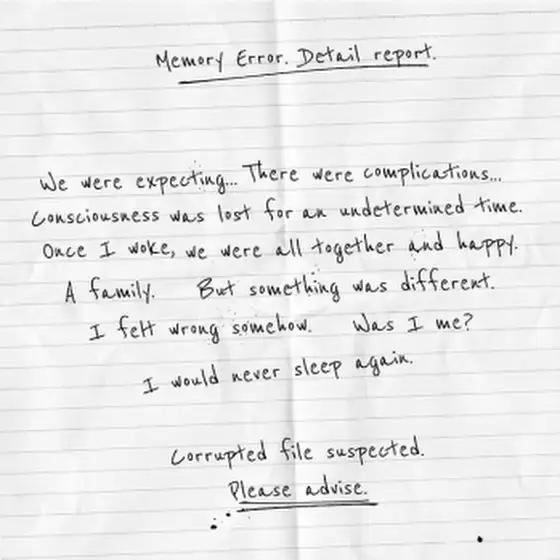 Memory Error. Detail report.
We were expecting... There were complications...
Consciousness was lost for an undetermined time.
Once I woke, we were all together and happy.
A family. But something was different.
I felt wrong somehow. Was I me?
I would never sleep again.
Corrupted file suspected.
Please advise.